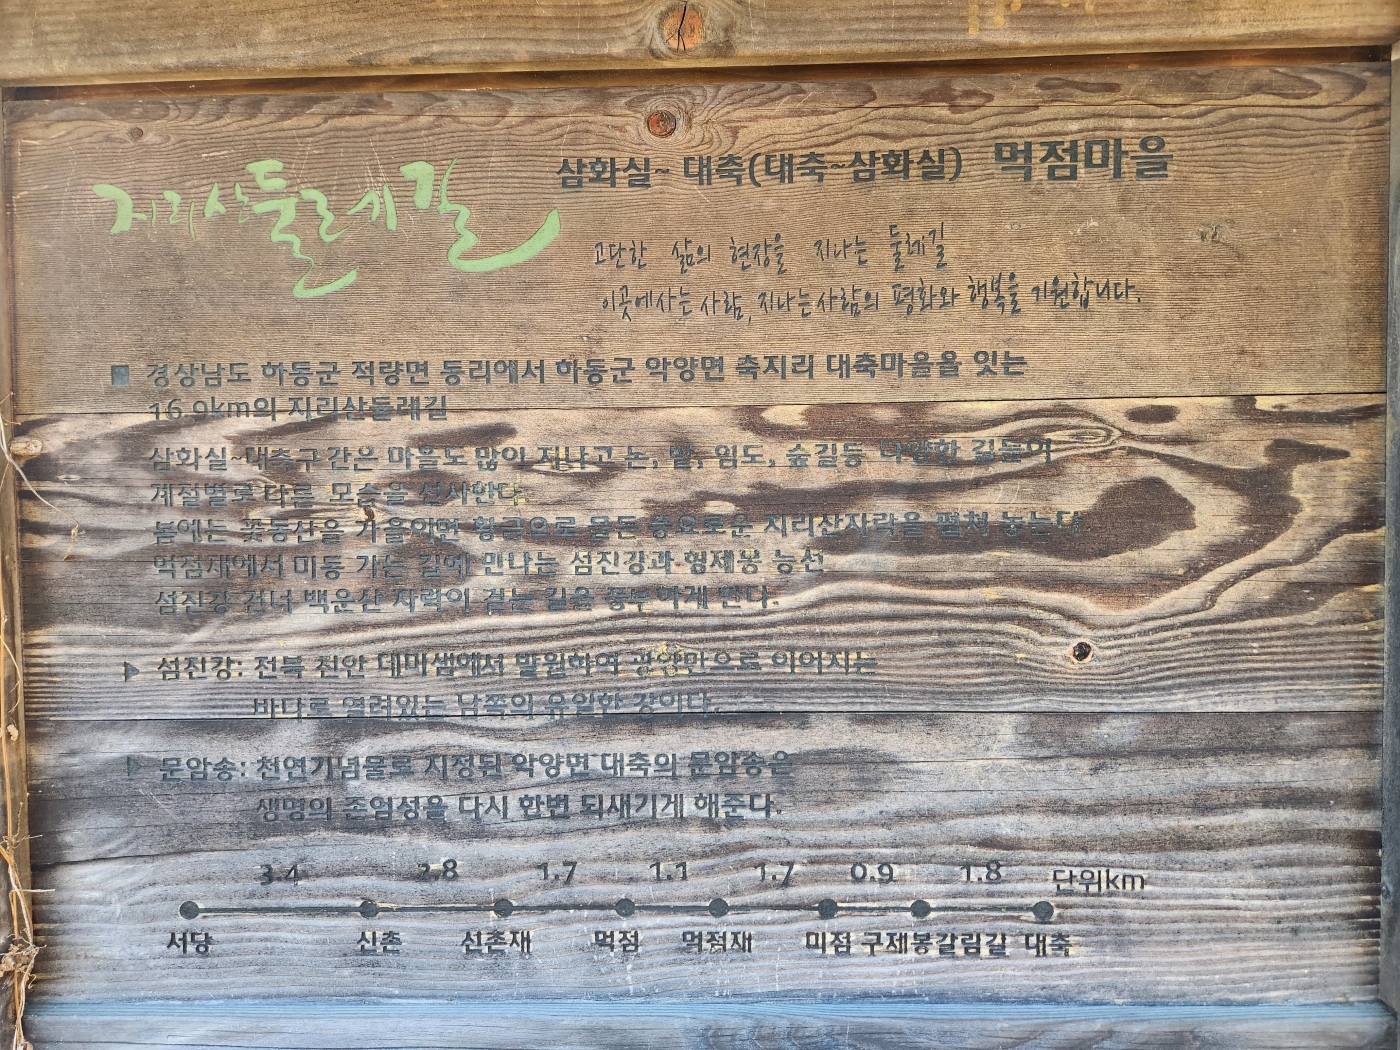 지리산둘레길
삼화실~ 대축(대축~삼화실) 먹점마을
고단한 삶의 현장을 지나는 둘레길
이곳에사는 사람, 지나는사람의 평화와 행복을 기원합니다.
■ 경상남도 하동군 적량면 동리에서 하동군 악양면 축지리 대축마을을 잇는
16.9km의 지리산둘레길
삼화실~대축구간은 마을도 많이 지나고 논, 밭, 임도, 숲길등 다양한 길들이
계절별로 다른 모습을 선사한다.
봄에는 꽃동산을 가을이면 황금으로 물든 풍요로운 지리산자락을 펼쳐 놓는다.
먹점재에서 미동 가는 길에 만나는 섬진강과 형제봉 능선
섬진강 건너 백운산 자락이 걷는 길을 풍부하게 한다.
▶ 섬진강: 전북 천안 데미샘에서 발원하여 광양만으로 이어지는
바다로 열려있는 남쪽의 유일한 강이다.
▶ 문암송: 천연기념물로 지정된 악양면 대축의 문암송은
생명의 존엄성을 다시 한번 되새기게 해준다.
3.4 2.8 1.7 1.1 1.7 0.9 1.8 단위km
서당 신촌 신촌재 먹점 먹점재 미점 구제봉갈림길 대축